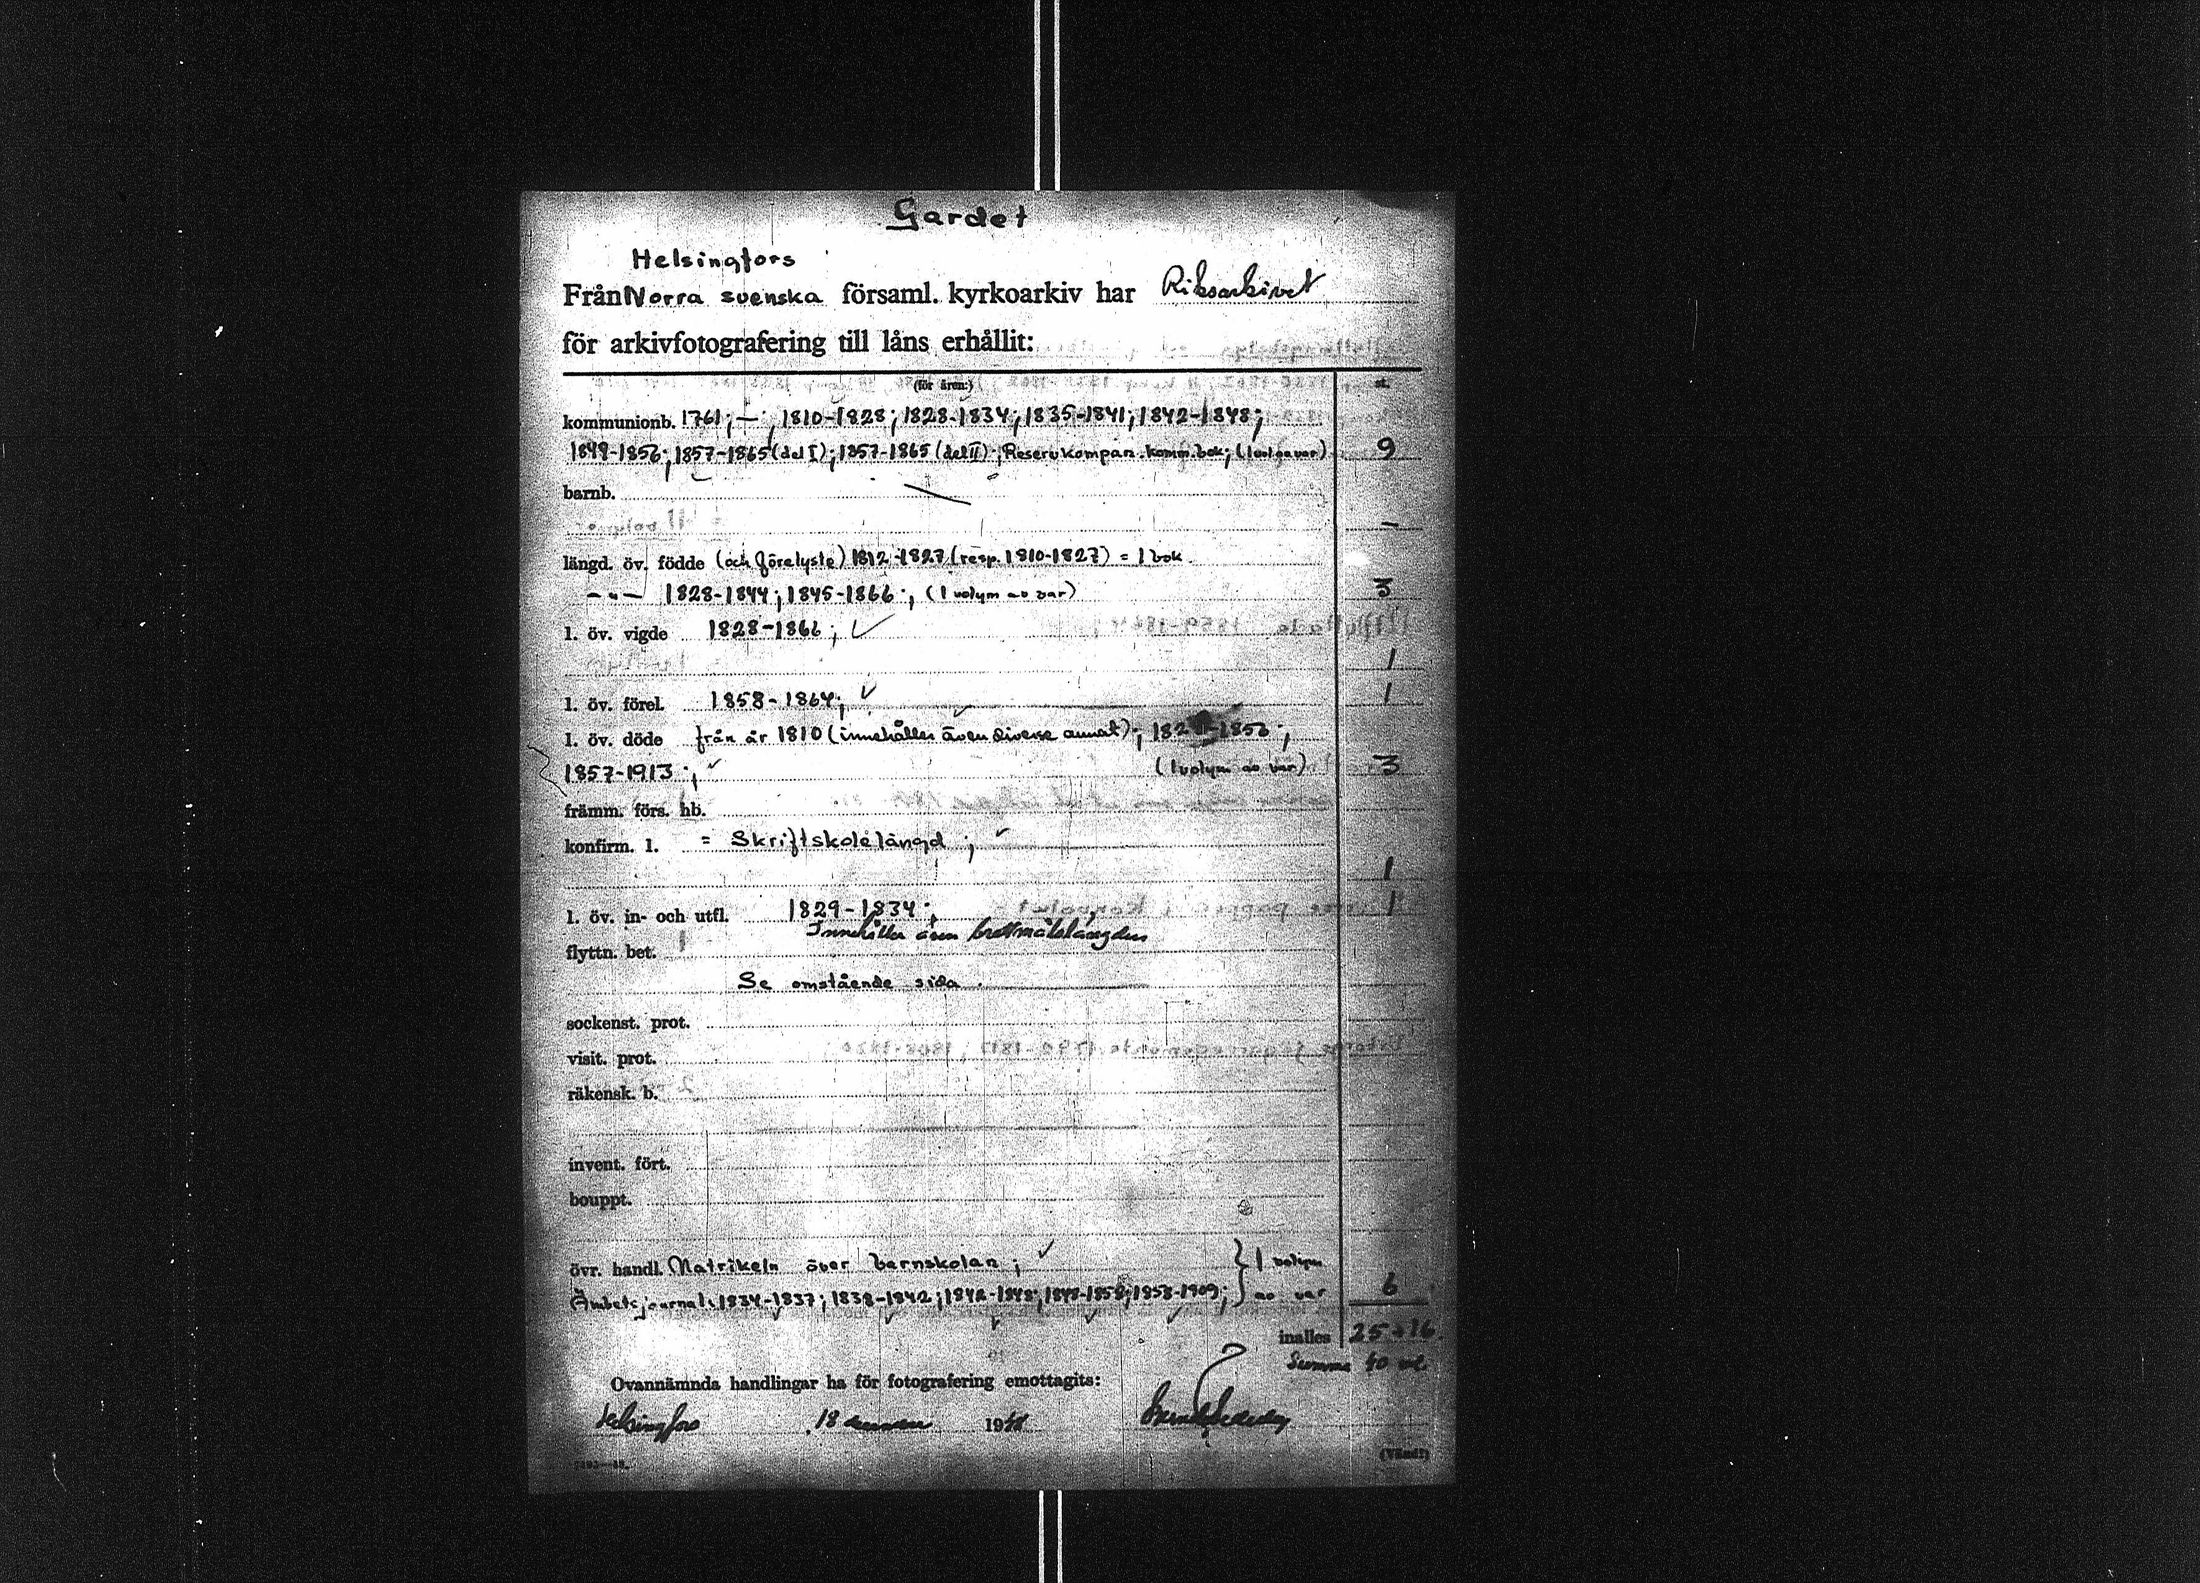 Gardet
Helsingfors
Från Norra svenska församl. kyrkoarkiv har Riksarkivet
för arkivfotografering till låns erhållit:
(för åren:) st.
kommunionb. 1761; — ; 1810-1828; 1828-1834; 1835-1841; 1842-1848;
1849-1856; 1857-1865 (del I); 1857-1865 (del II); Reservkompan. komm.bok; (1 vol av var) 9
barnb. —
–
längd. öv. födde (och förelyste) 1812-1827 (resp. 1810-1827) = 1 bok.
— " — 1828-1844; 1845-1866; (1 volym av var) 3
l. öv. vigde 1828-1866; ✓
1
l. öv. förel. 1858-1864; ✓ 1
l. öv. döde från år 1810 (innehåller även diverse annat); -1856;
1857-1913; ✓ (1 volym av var) 3
främm. förs. hb.
konfirm. l. = Skriftskolelängd; ✓
1
l. öv. in- och utfl. 1829-1834; 1
Innehåller även brottmålslängden
flyttn. bet.
Se omstående sida.
sockenst. prot.
visit. prot.
räkensk. b.
invent. fört.
bouppt.
övr. handl. Matrikeln över barnskolan; ✓ } 1 volym
Ämbetsjournal: 1834-1837; 1838-1842; 1842-1848; 1848-1858; 1858-1909; } av var 6
inalles 25+16
Summa 40 vol
Ovannämnda handlingar ha för fotografering emottagits:
Helsingfors 18 1948
(Vänd!)